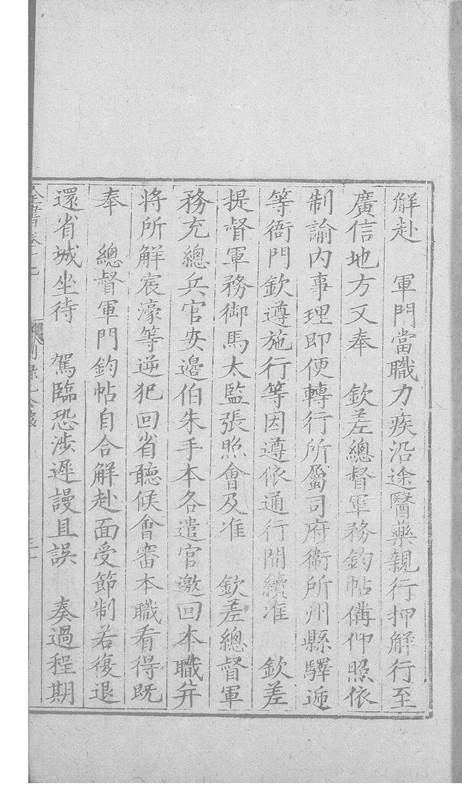 解赴　軍門當職力疾沿途醫藥親行押解行至
廣信地方又奉　欽差總督軍務鈞帖備仰照依
制諭內事理即便轉行所屬司府衛所州縣驛遞
等衙門欽遵施行等因遵依通行間續准　欽差
提督軍務御馬太監張照會及准　欽差總督軍
務充總兵官安邊伯朱手本各遣官邀回本職并
將所解宸濠等逆犯回省聽候會審本職看得既
奉　總督軍門鈞帖自合解赴面受節制若復退
還省城坐待　駕臨恐涉遲謾且誤　奏過程期